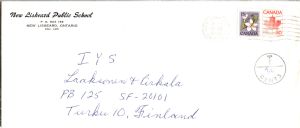 New Liskeard Public School
NEW LISKEARD, ONTARIO
CANADA
CANADA
I Y S
Laaksonen & Cirkala
PB 125 SF-20101
Turku 10, Finland
CENTS